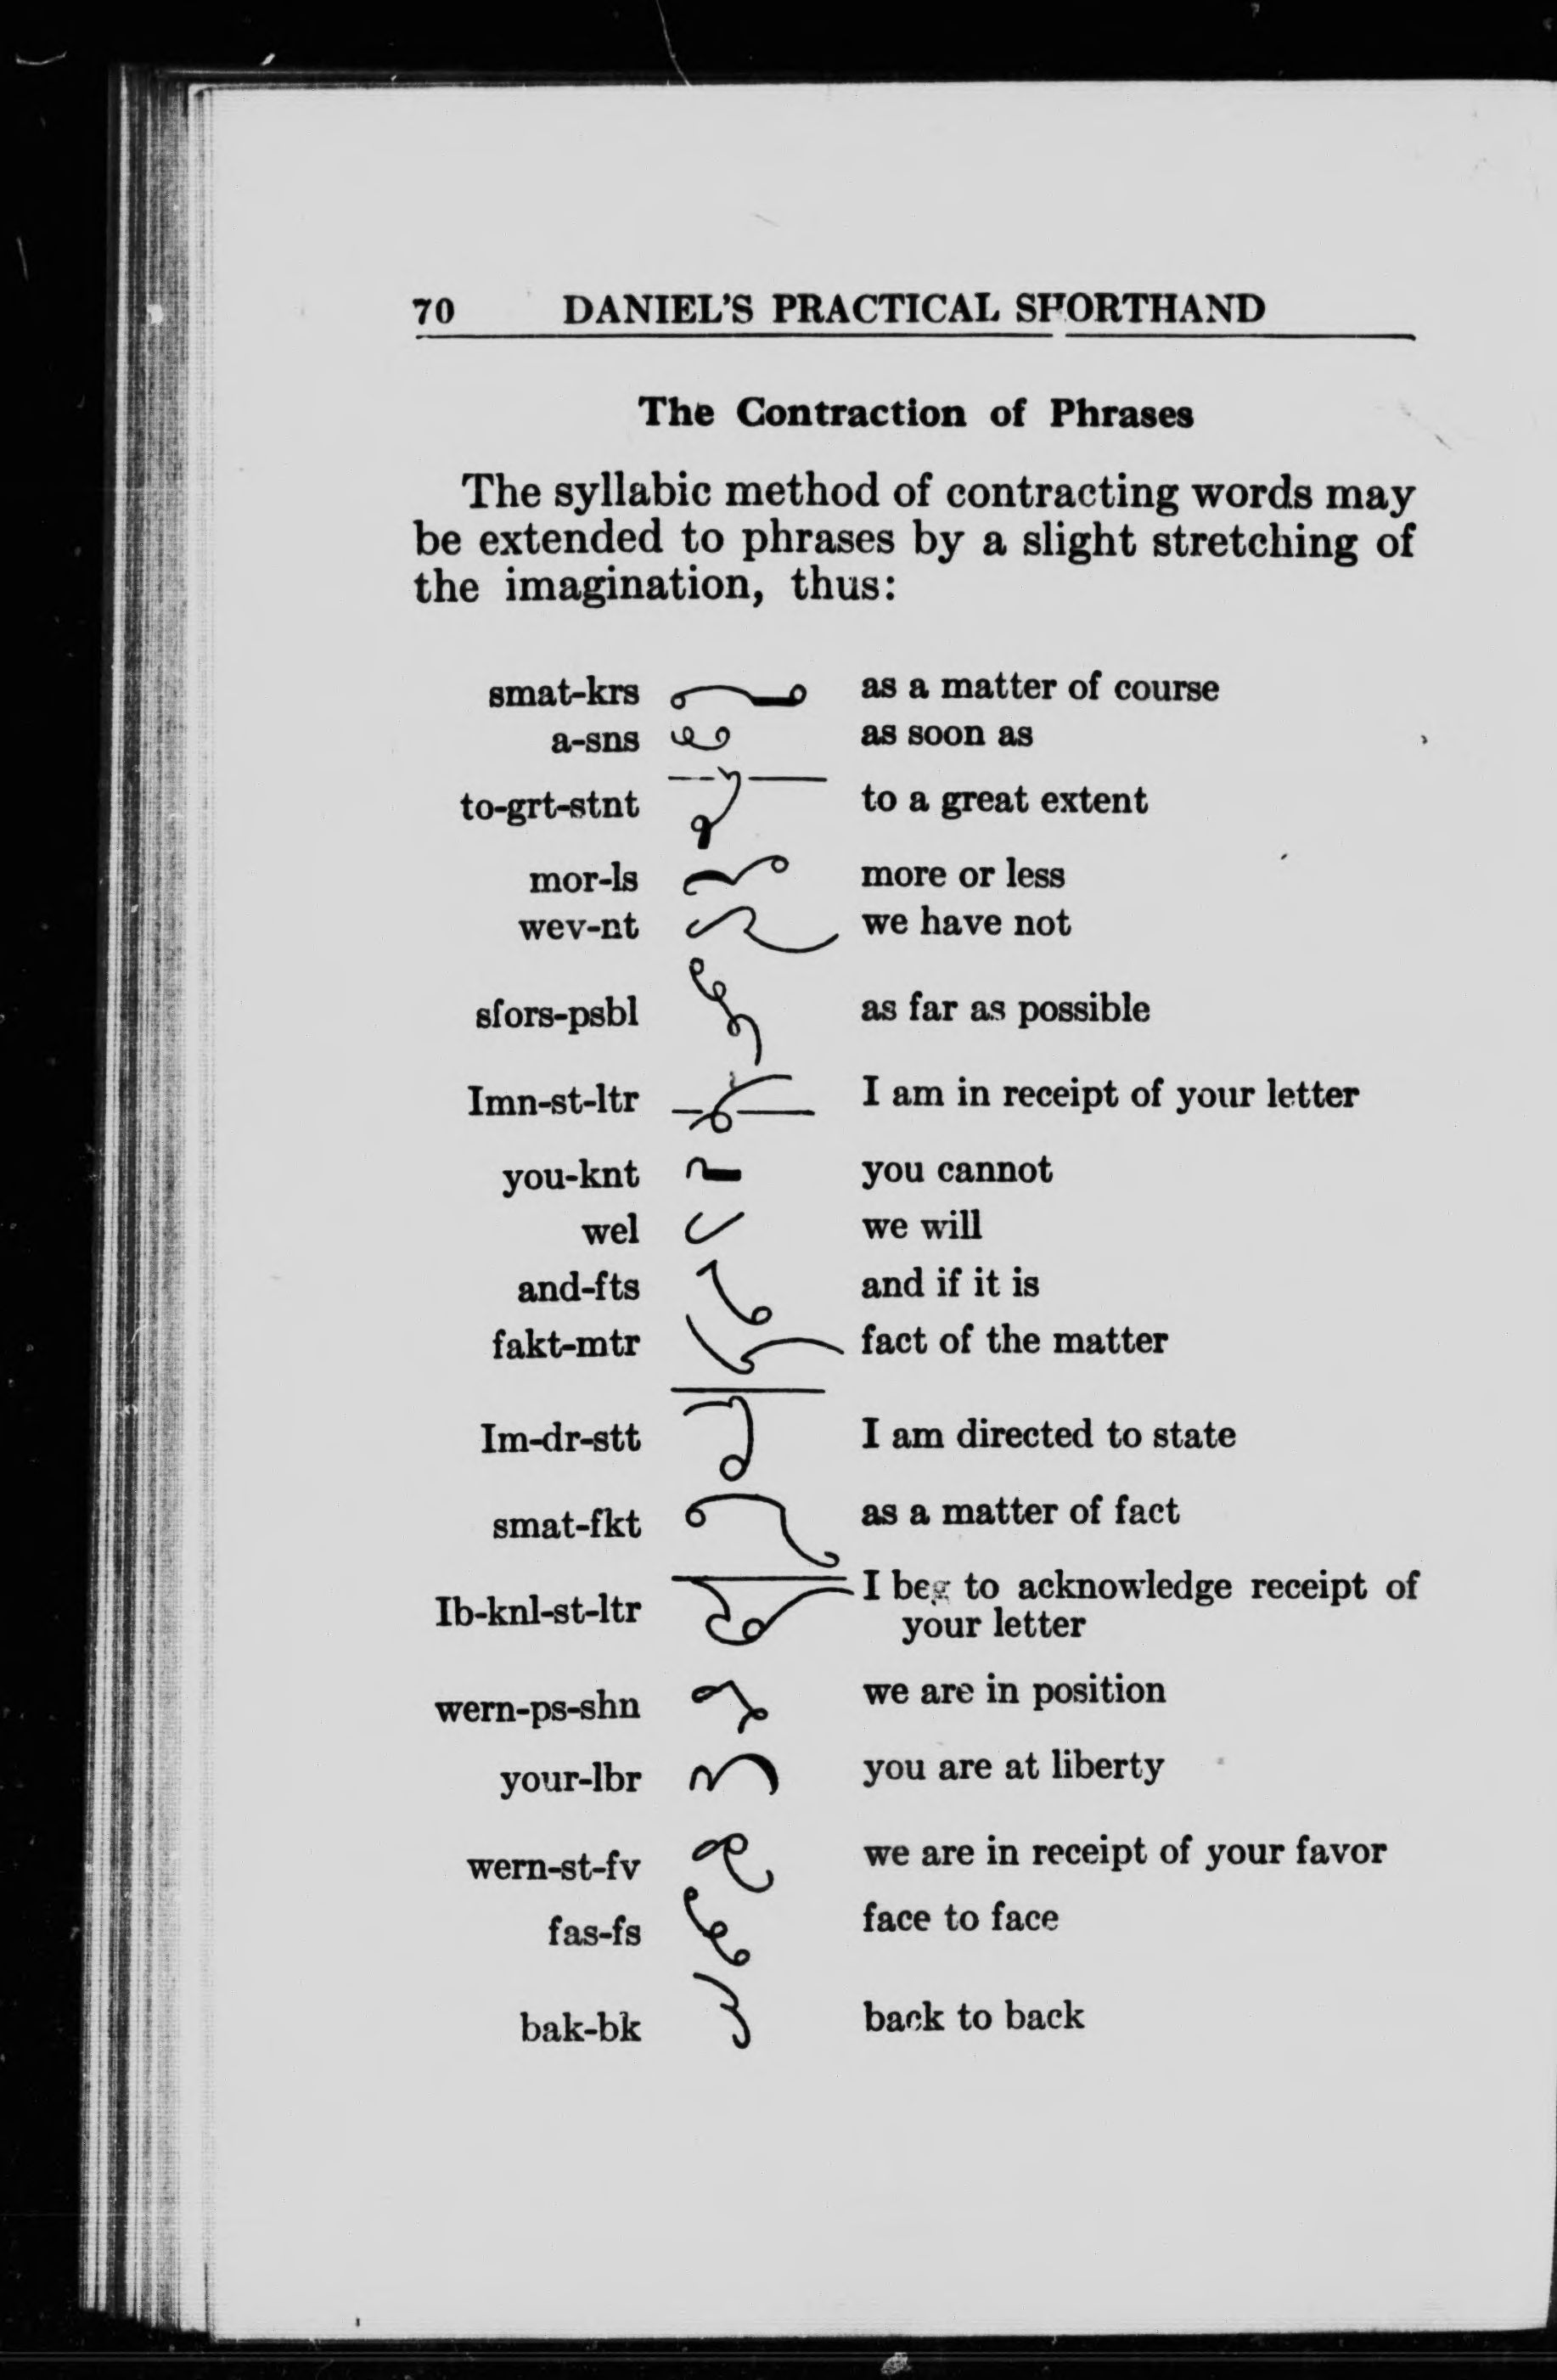 70 DANIEL'S PRACTICAL SHORTHAND
The Contraction of Phrases
The syllabic method of contracting words may
be extended to phrases by a slight stretching of
the imagination, thus:
smat-krs as a matter of course
a-sns as soon as
to-grt-stnt to a great extent
mor-ls more or less
wev-nt we have not
sfors-psbl as far as possible
Imn-st-ltr I am in receipt of your letter
you-knt you cannot
wel we will
and-fts and if it is
fakt-mtr fact of the matter
Im-dr-stt I am directed to state
smat-fkt as a matter of fact
Ib-knl-st-ltr I beg to acknowledge receipt of
your letter
wern-ps-shn we are in position
your-lbr you are at liberty
wern-st-fv we are in receipt of your favor
fas-fs face to face
bak-bk back to back